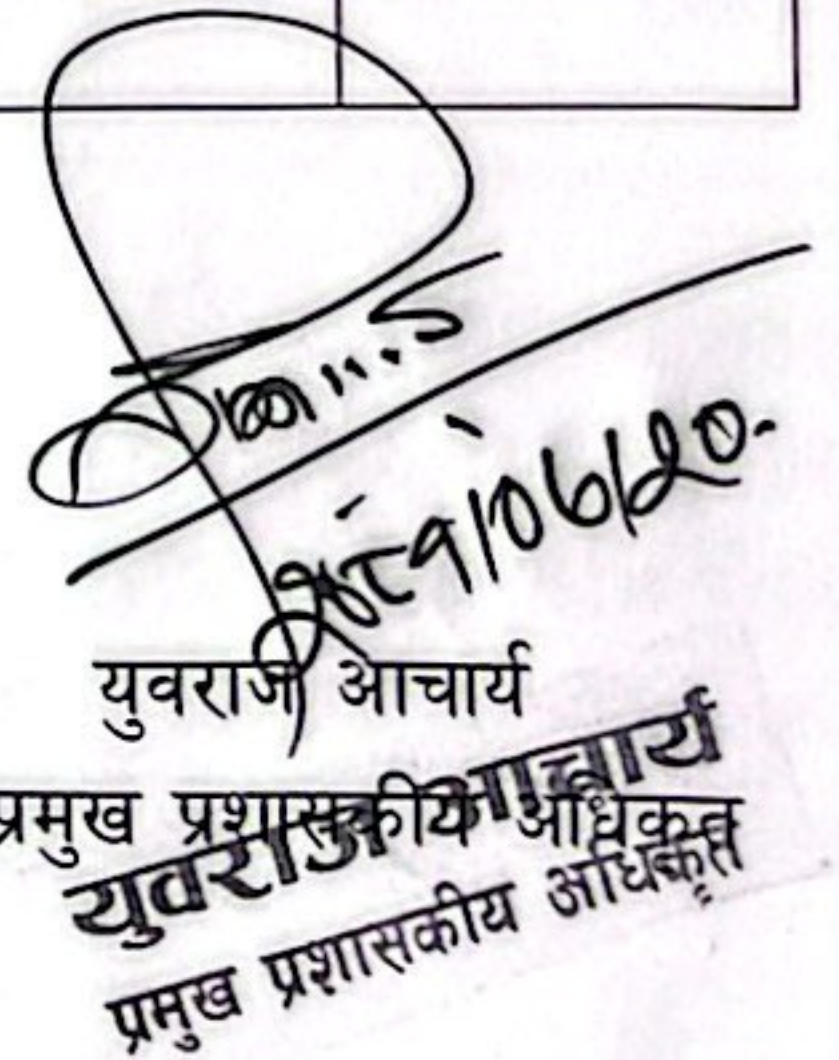 युवराज आचार्य
प्रमुख प्रशासकीय अधिकृत
युवराज आचार्य
प्रमुख प्रशासकीय अधिकृत